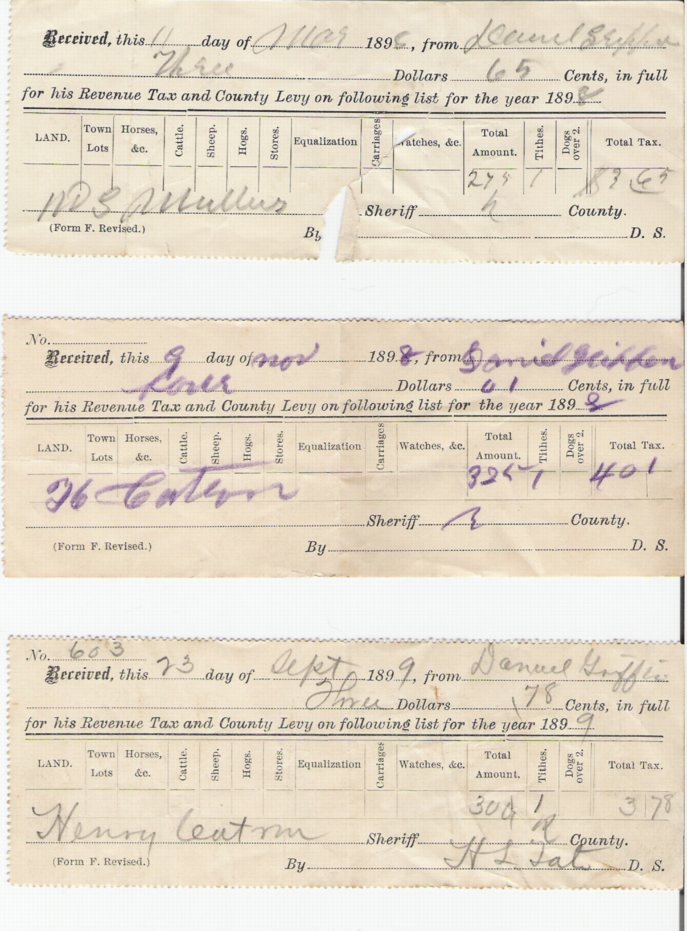 Received, this 11 day of Mar 1898, from Daniel Griffin
Three Dollars 65 Cents, in full
for his Revenue Tax and County Levy on following list for the year 1898
LAND. Town Lots Horses, &c. Cattle. Sheep. Hogs. Stores. Equalization Carriages Watches, &c. Total Amount. Tithes. Dogs over 2. Total Tax.
275 1 3 65
Sheriff County.
(Form F. Revised.) By D. S.
No.
Received, this 9 day of nov 1898, from Daniel Griffin
Dollars 01 Cents, in full
for his Revenue Tax and County Levy on following list for the year 1898
LAND. Town Lots Horses, &c. Cattle. Sheep. Hogs. Stores. Equalization Carriages Watches, &c. Total Amount. Tithes. Dogs over 2. Total Tax.
325 1 401
H Catron
Sheriff County.
(Form F. Revised.) By D. S.
No. 603
Received, this 23 day of Sept 1899, from Daniel Griffin
Three Dollars 78 Cents, in full
for his Revenue Tax and County Levy on following list for the year 1899
LAND. Town Lots Horses, &c. Cattle. Sheep. Hogs. Stores. Equalization Carriages Watches, &c. Total Amount. Tithes. Dogs over 2. Total Tax.
300 1 3 78
Henry Catron Sheriff County.
(Form F. Revised.) By H L D. S.